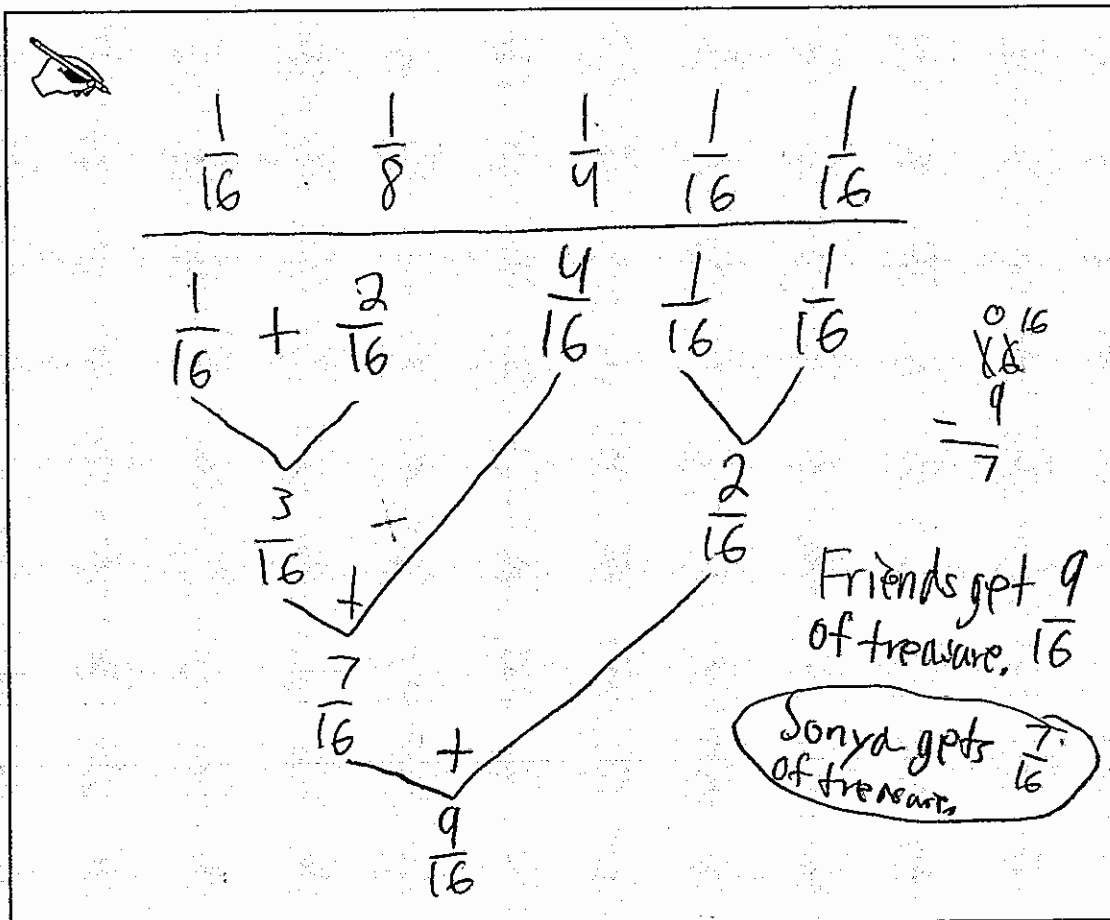 1/16 1/8 1/4 1/16 1/16
1/16 + 2/16 4/16 1/16 1/16
0 16
16
- 9
7
3/16 + 2/16
+
Friends get 9/16
of treasure.
7/16 +
Sonya gets 7/16
of treasure.
9/16